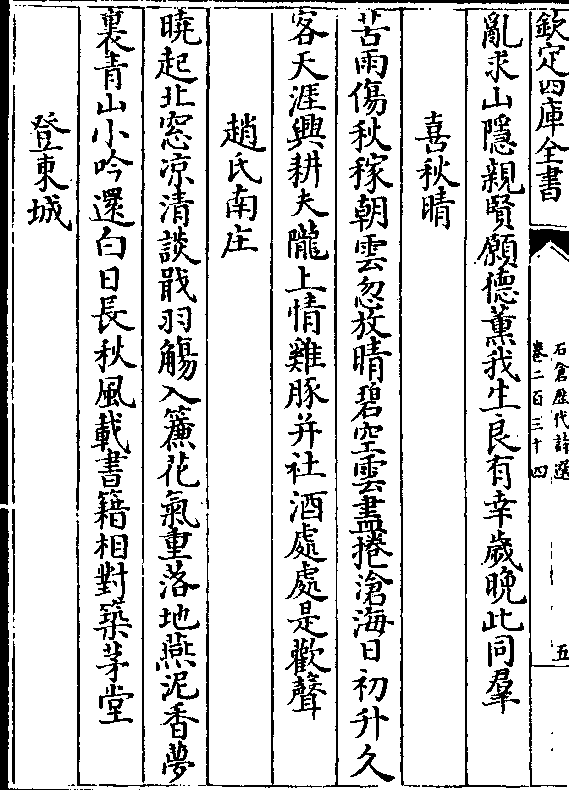 欽定四庫全書
石倉歴代詩選
卷二百三十四
五
亂求山隱親賢願德薫我生良有幸歲晚此同羣
喜秋晴
苦雨傷秋稼朝雲忽放晴碧空雲盡捲滄海日初升久
客天涯興耕夫隴上情雞豚并社酒處處是歡聲
趙氏南庄
曉起北窓凉清談戢羽觴入簾花氣重落地燕泥香夢
裏青山小吟還白日長秋風載書籍相對築茅堂
登東城